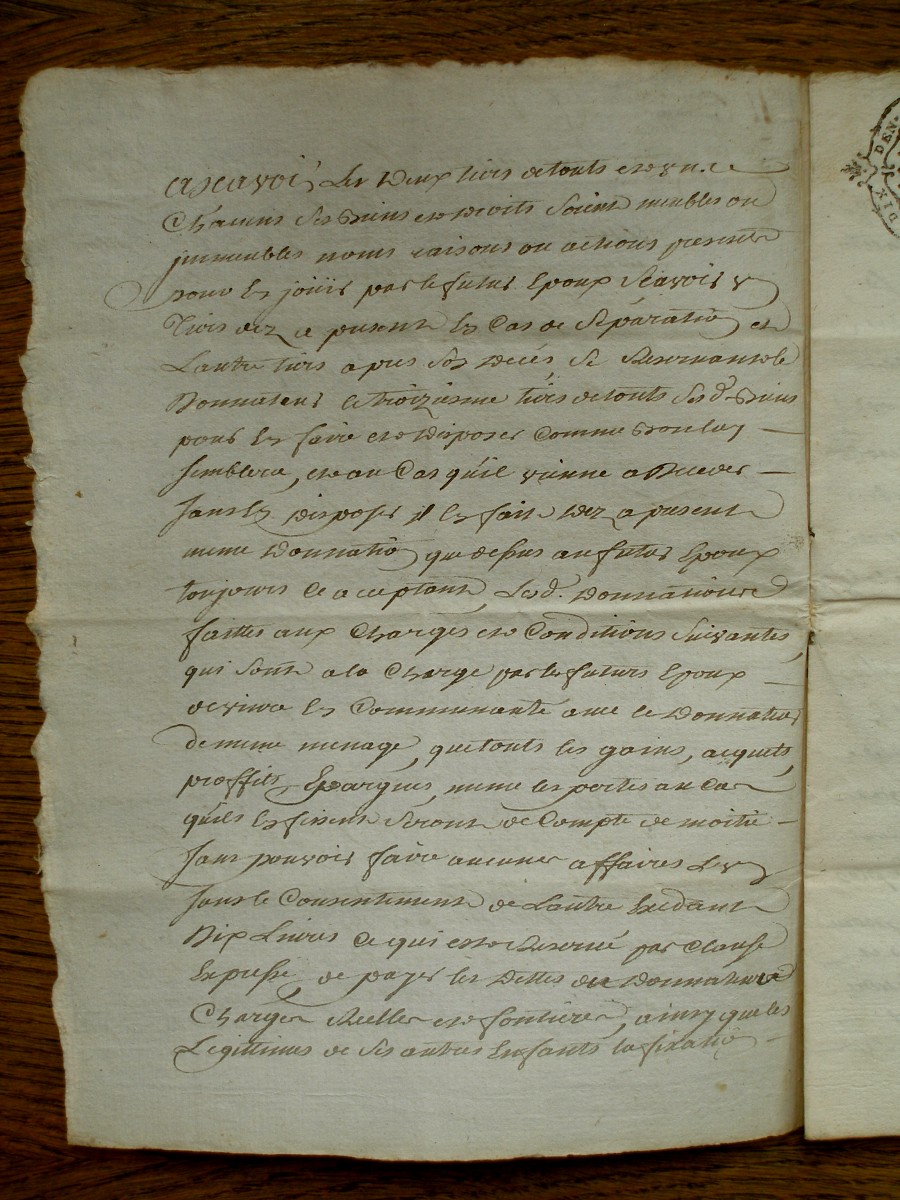 ascavoir Les deux tiers de touts et un
Chacuns Ses biens et droits Soient meubles ou
jmmeubles noms raisons ou actions presents
pour En joüir par le futur Epoux Scavoir Un
Tiers dez a present En Cas de Séparation et
Lautre tiers apres Son décés, Se Reservant le
Donnateur le troiziesme tiers de touts Sesd. biens
pour En faire et disposer Comme bon luy
Semblera, et au Cas qu'il vienne a déceder
Sans En disposer il En fait dez a present
meme donnation que dessus au futur Epoux
toujours ce acceptant, Lesd. donnations
faittes aux Charges et Conditions Suivantes,
qui Sont a la Charge par les futurs Epoux
de vivre En Communauté avec le donnateur
de meme menage, que touts les gains, acquets,
proffits, Epargnes, meme les pertes au Cas
qu'ils En fissent Seront de Compte de moitié
Sans pouvoir faire aucunes affaires L'un
Sans le Consentement de L'autre Exedant
Dix Livres Ce qui est Reservé par Clause
Expresse, de payer les dettes du donnateur
Charges Réelles et fontieres, ainsy que les
Legittimes de Ses autres Enfants la fixation
DIX DEN.